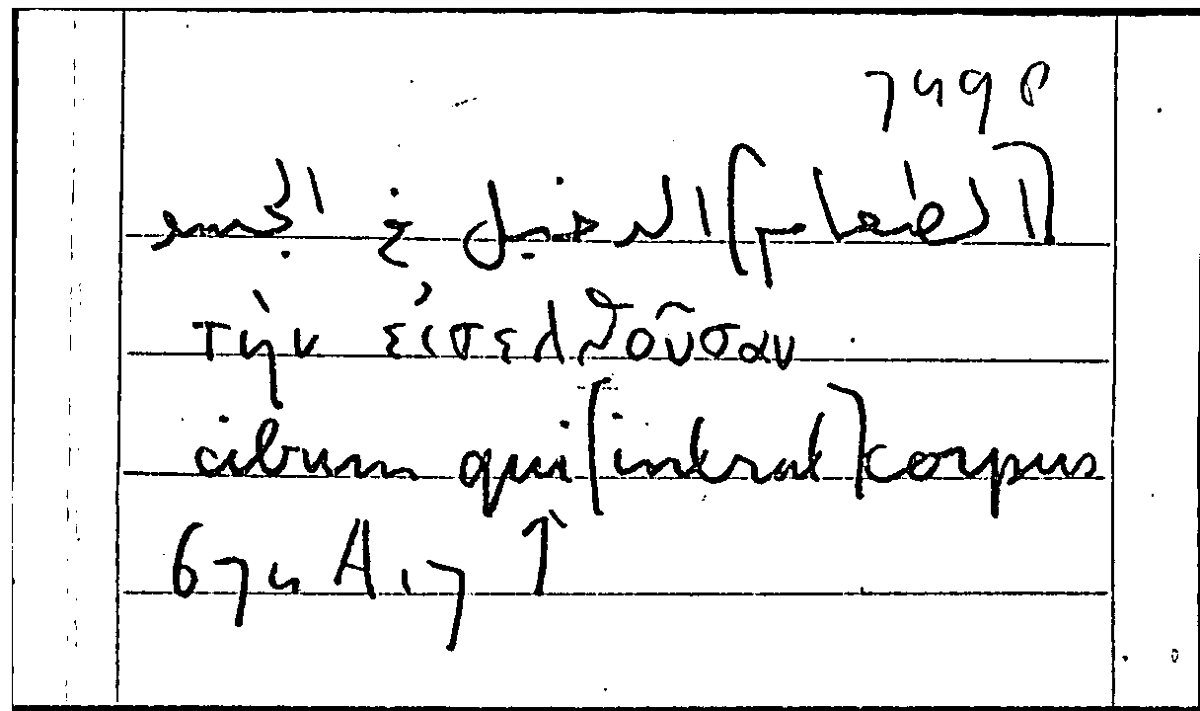 7498
[الطعام] الدخيل في الجسد
τὴν εἰσελθοῦσαν
cibum qui [intrat] corpus
674 A 17 ↑